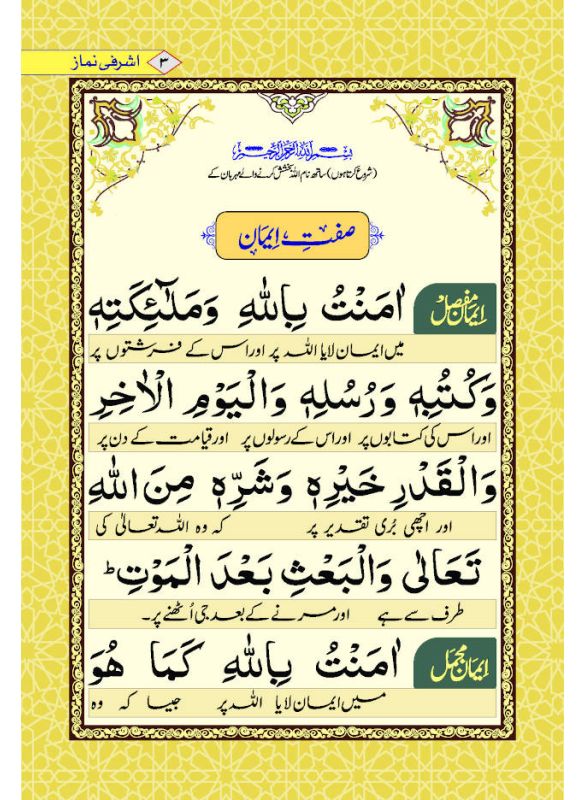 اشرفی نماز ۳
بسم اللہ الرحمن الرحیم
(شروع کرتا ہوں) ساتھ نام اللہ بخشش کرنے والے مہربان کے
صفتِ اِیمَان
اِیمَان مُفصّل
اٰمَنْتُ بِاللّٰهِ وَمَلٰٓئِكَتِهٖ
میں ایمان لایا اللہ پر اور اس کے فرشتوں پر
وَكُتُبِهٖ وَرُسُلِهٖ وَالْيَوْمِ الْاٰخِرِ
اور اس کی کتابوں پر اور اس کے رسولوں پر اور قیامت کے دن پر
وَالْقَدْرِ خَيْرِهٖ وَشَرِّهٖ مِنَ اللّٰهِ
اور اچھی بُری تقدیر پر کہ وہ اللہ تعالیٰ کی
تَعَالٰى وَالْبَعْثِ بَعْدَ الْمَوْتِ ؕ
طرف سے ہے اور مرنے کے بعد جی اُٹھنے پر۔
اِیمَان مُجمَل
اٰمَنْتُ بِاللّٰهِ كَمَا هُوَ
میں ایمان لایا اللہ پر جیسا کہ وہ